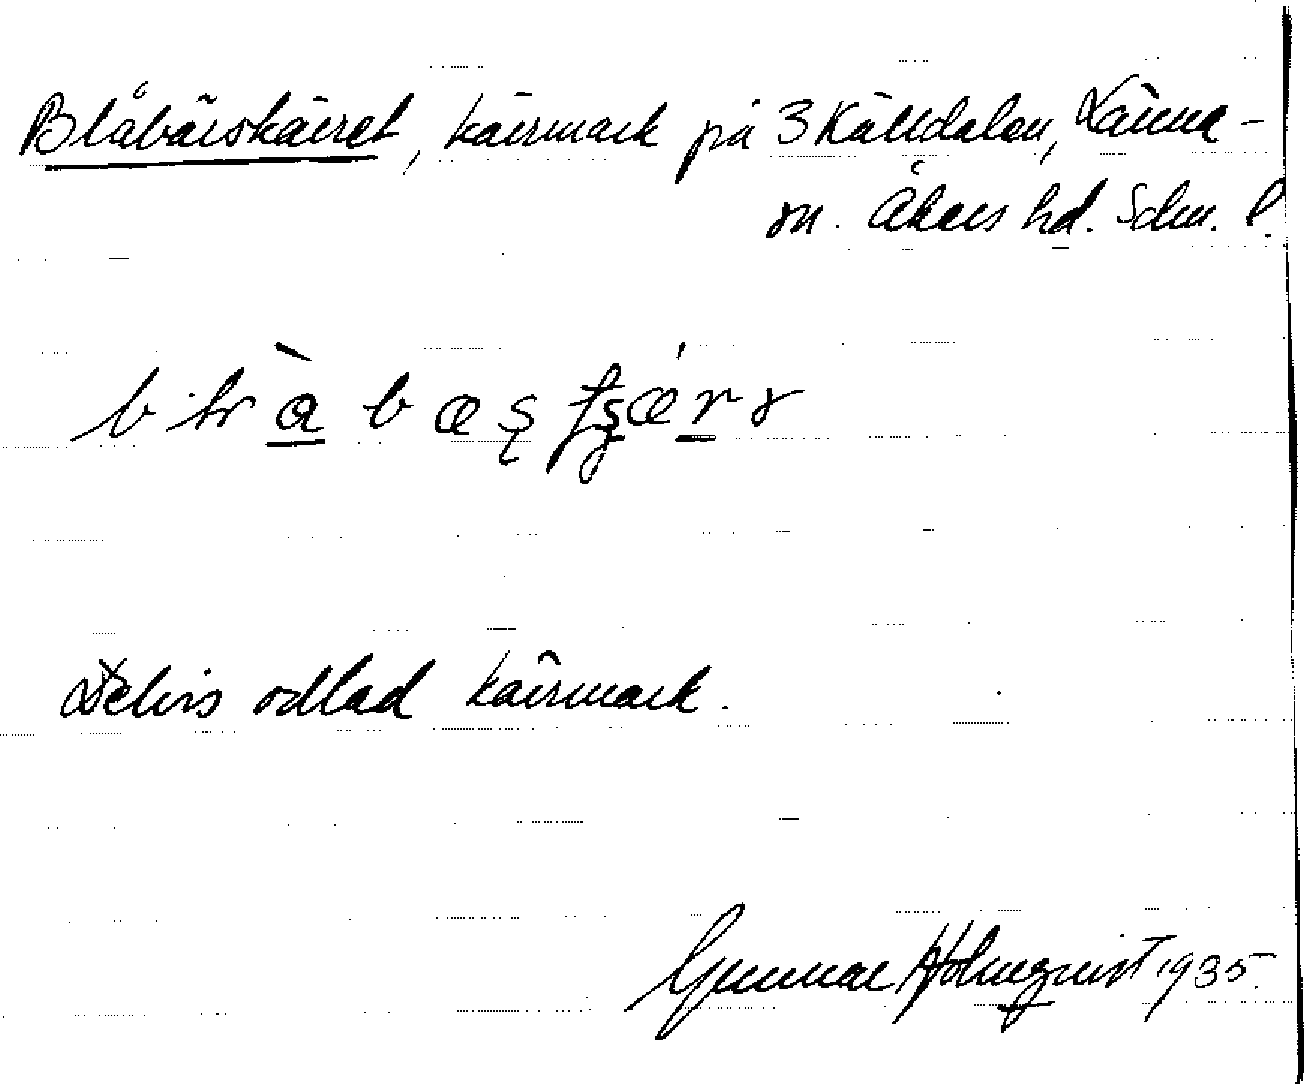 Blåbärskärret, kärrmark på 3 Källdalen, Länna -
sn. Åkers hd. Sdm. l.
Delvis odlad kärrmark.
Gunnar Holmqvist 1935.